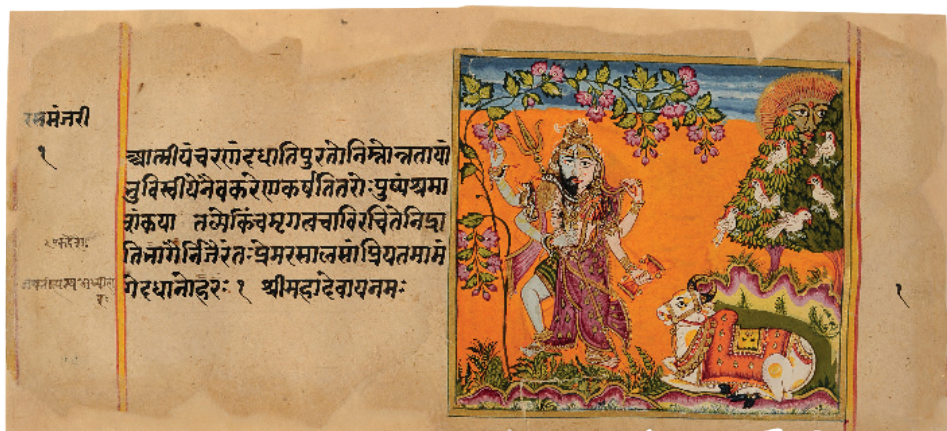 रसमंजरी
१
आत्मीयंचरणंदधातिपुरतोनिम्नोन्नतायां
भुविस्वीयेनैवकरेणकर्षतितरोःपुष्पंश्रमा
शंकया तल्पेकिंचमृगत्वचाविरचितेनिद्रा
तिभागैर्निजैरंतःप्रेमरसालसांप्रियतमामं
गेदधानोहरः १ श्रीमहादेवायनमः
१